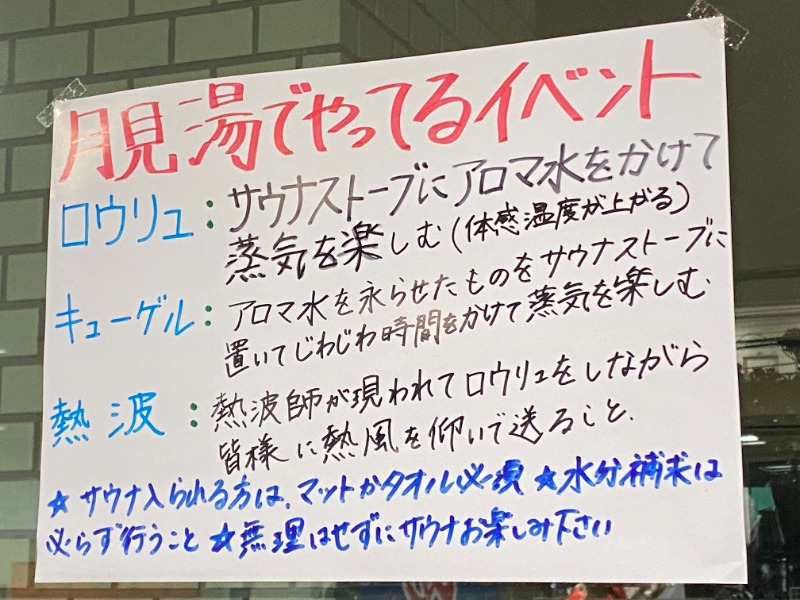 月見湯でやってるイベント
ロウリュ：サウナストーブにアロマ水をかけて
蒸気を楽しむ(体感温度が上がる)
キューゲル：アロマ水を永らせたものをサウナストーブに
置いてじわじわ時間をかけて蒸気を楽しむ
熱波：熱波師が現われてロウリュをしながら
皆様に熱風を仰いで送ること.
☆サウナ入られる方は、マットかタオル必須☆水分補求は
必らず行うこと☆無理はせずにサウナお楽しみ下さい